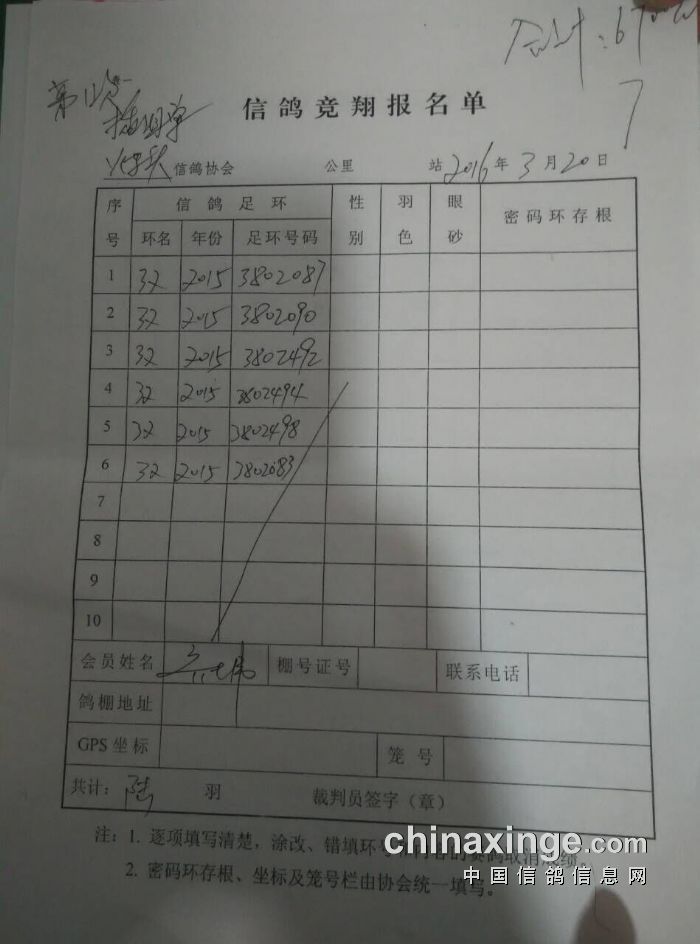 合计:6700元
第
插组单
信鸽竞翔报名单
信鸽协会 公里 站 2016年3月20日
序号 信鸽足环 性别 羽色 眼砂 密码环存根
环名 年份 足环号码
1 32 2015 3802087
2 32 2015 3802090
3 32 2015 3802492
4 32 2015 3802494
5 32 2015 3802498
6 32 2015 3802683
7
8
9
10
会员姓名 棚号证号 联系电话
鸽棚地址
GPS坐标 笼号
共计: 陆 羽 裁判员签字(章)
注:1. 逐项填写清楚,涂改、错填环号
2. 密码环存根、坐标及笼号栏由协会统一填写。
chinaxinge.com
中国信鸽信息网